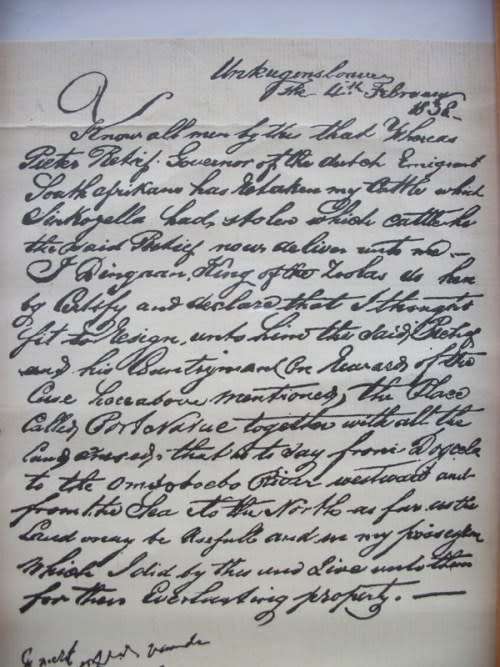 Unkugensloave
the 4th February
1838
Know all men by this that Whereas
Pieter Retief Governor of the dutch Emigrant
South afrikans has Retaken my Cattle which
Sinkoyella had stolen which cattle he
the said Retief now deliver unto me —
I Dingaan, King of the Zoolas do here
by Certify and declare that I thought
fit to Resign unto him the said Retief
and his Countryman (on Reward of the
Case hereabove mentioned) the Place
Called Port Natal together with all the
land annexed, that is to say from Dogela
to the Omsoboebo River westward and
from the Sea to the North as far as the
Land may be Usefull and in my possession
Which I did by this and Give unto them
for their Everlasting property. —